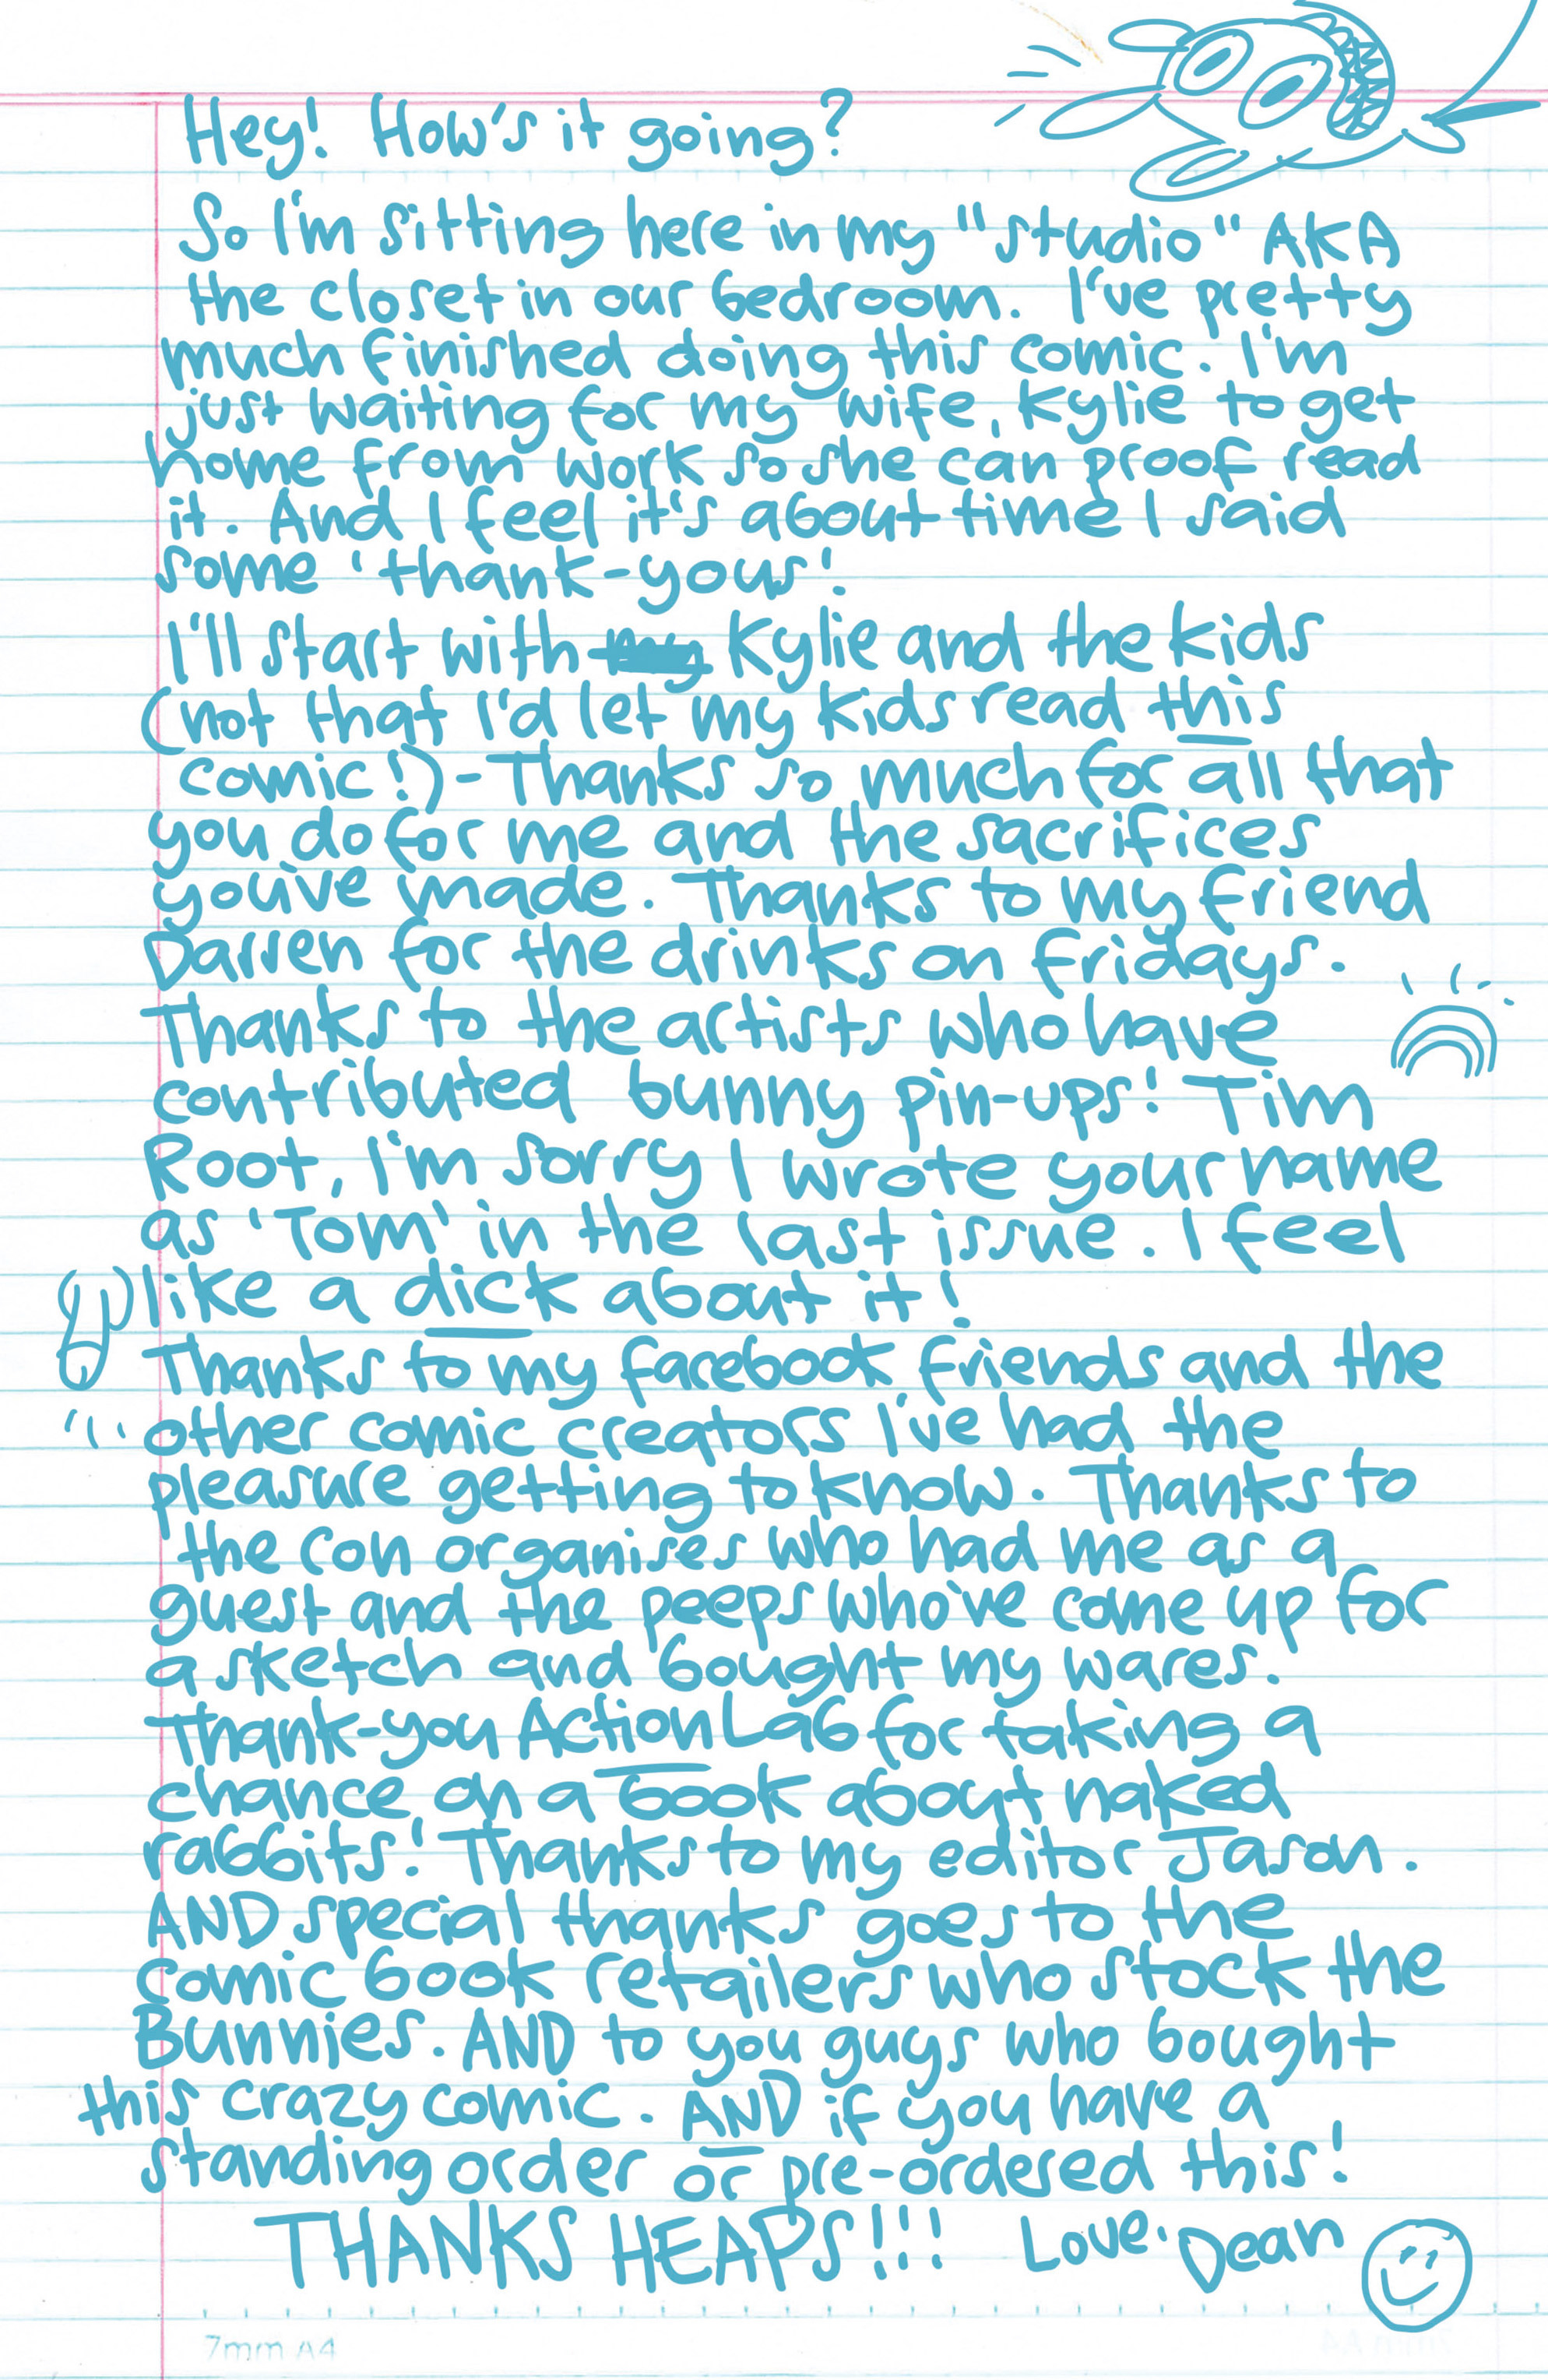 Hey! How's it going?
So I'm sitting here in my "studio" AKA
the closet in our bedroom. I've pretty
much finished doing this comic. I'm
just waiting for my wife, Kylie to get
home from work so she can proof read
it. And I feel it's about time I said
some 'thank-yous'.
I'll start with my Kylie and the kids
(not that I'd let my kids read this
comic!) - Thanks so much for all that
you do for me and the sacrifices
you've made. Thanks to my friend
Darren for the drinks on Fridays.
Thanks to the artists who have
contributed bunny pin-ups! Tim
Root, I'm sorry I wrote your name
as 'Tom' in the last issue. I feel
like a dick about it!
Thanks to my facebook friends and the
other comic creators I've had the
pleasure getting to know. Thanks to
the con organises who had me as a
guest and the peeps who've come up for
a sketch and bought my wares.
Thank-you Action Lab for taking a
chance on a book about naked
rabbits! Thanks to my editor Jason.
AND special thanks goes to the
comic book retailers who stock the
Bunnies. AND to you guys who bought
this crazy comic. AND if you have a
standing order or pre-ordered this!
THANKS HEAPS!!! Love. Dean
7mm A4